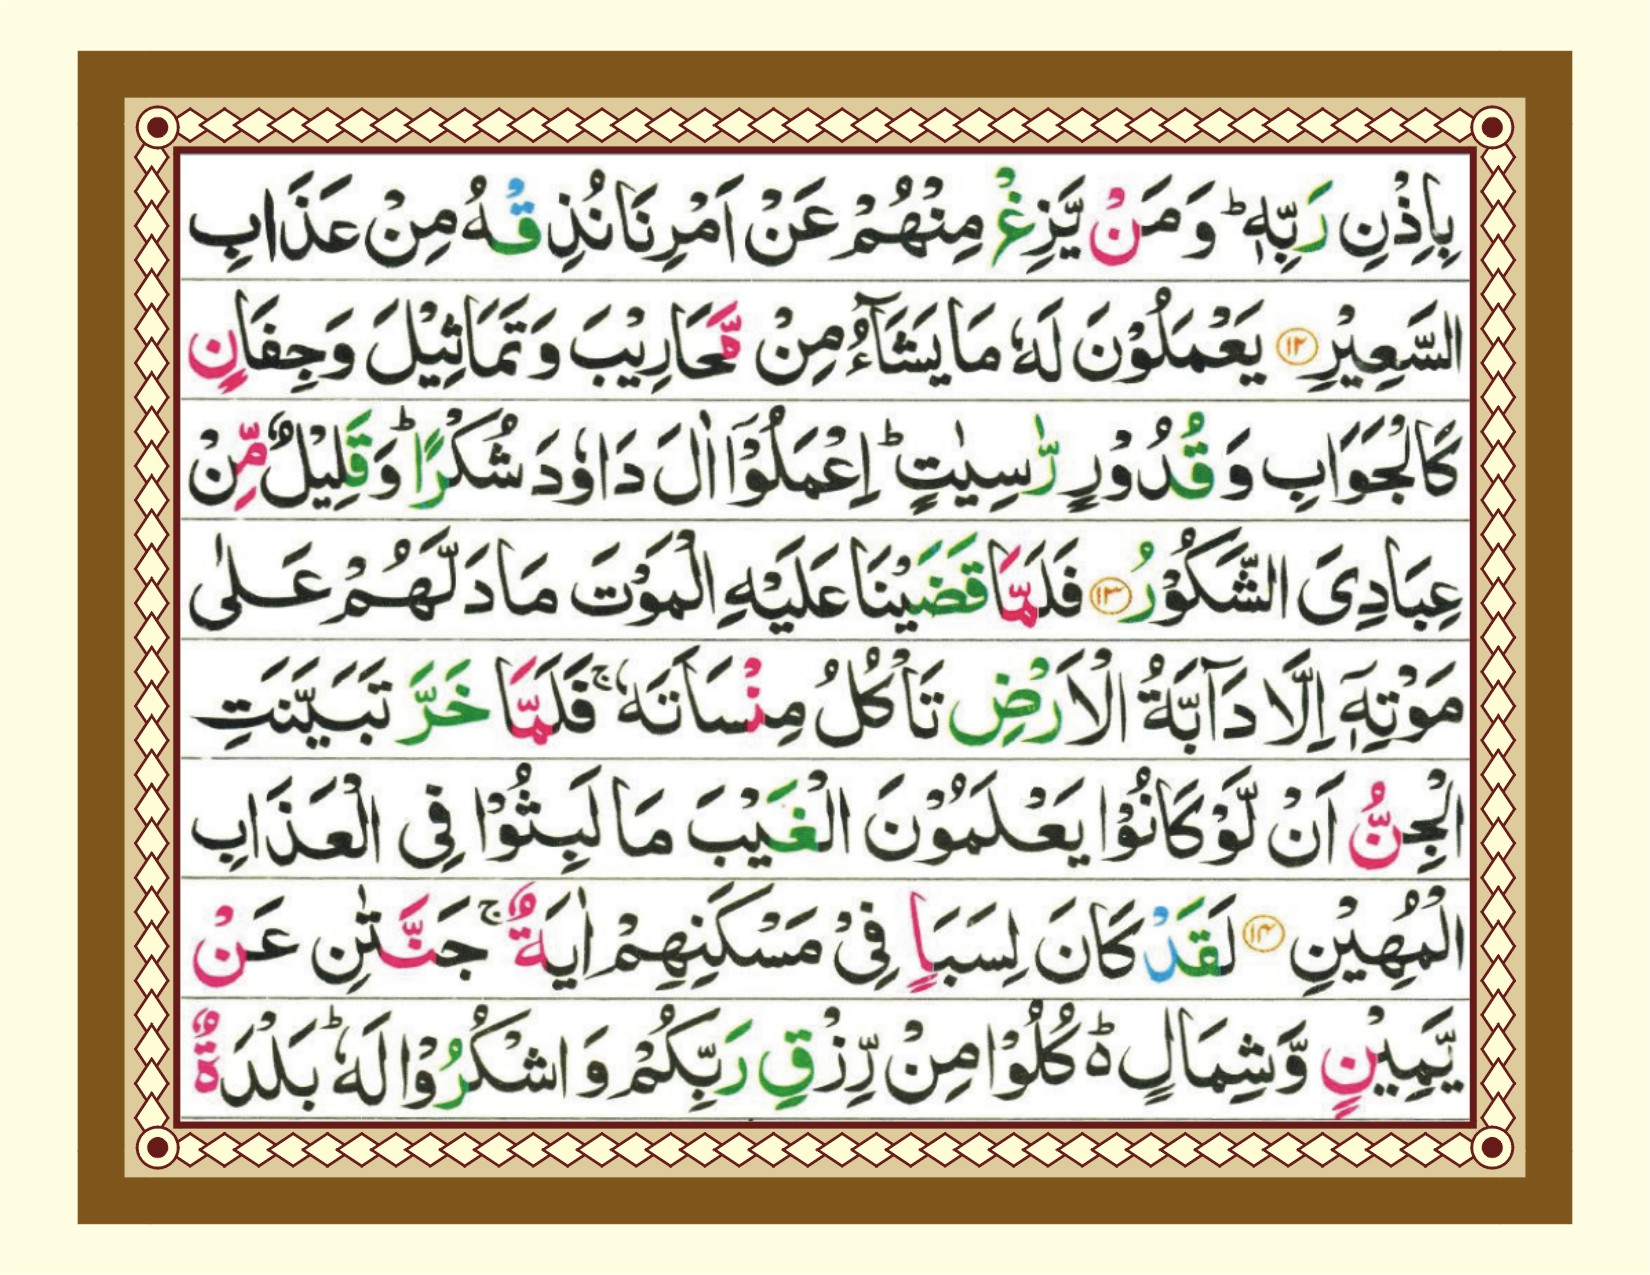 بِاِذْنِ رَبِّهٖ ؕ وَ مَنْ يَّزِغْ مِنْهُمْ عَنْ اَمْرِنَا نُذِقْهُ مِنْ عَذَابِ
السَّعِيْرِ ۝۱۲ يَعْمَلُوْنَ لَهٗ مَا يَشَآءُ مِنْ مَّحَارِيْبَ وَ تَمَاثِيْلَ وَ جِفَانٍ
كَالْجَوَابِ وَ قُدُوْرٍ رّٰسِيٰتٍ ؕ اِعْمَلُوْۤا اٰلَ دَاوٗدَ شُكْرًا ؕ وَ قَلِيْلٌ مِّنْ
عِبَادِىَ الشَّكُوْرُ ۝۱۳ فَلَمَّا قَضَيْنَا عَلَيْهِ الْمَوْتَ مَا دَلَّهُمْ عَلٰى
مَوْتِهٖۤ اِلَّا دَآبَّةُ الْاَرْضِ تَاْكُلُ مِنْسَاَتَهٗ ۚ فَلَمَّا خَرَّ تَبَيَّنَتِ
الْجِنُّ اَنْ لَّوْ كَانُوْا يَعْلَمُوْنَ الْغَيْبَ مَا لَبِثُوْا فِى الْعَذَابِ
الْمُهِيْنِ ۝۱۴ لَقَدْ كَانَ لِسَبَاٍ فِىْ مَسْكَنِهِمْ اٰيَةٌ ۚ جَنَّتٰنِ عَنْ
يَّمِيْنٍ وَّ شِمَالٍ ۬ؕ كُلُوْا مِنْ رِّزْقِ رَبِّكُمْ وَ اشْكُرُوْا لَهٗ ؕ بَلْدَةٌ